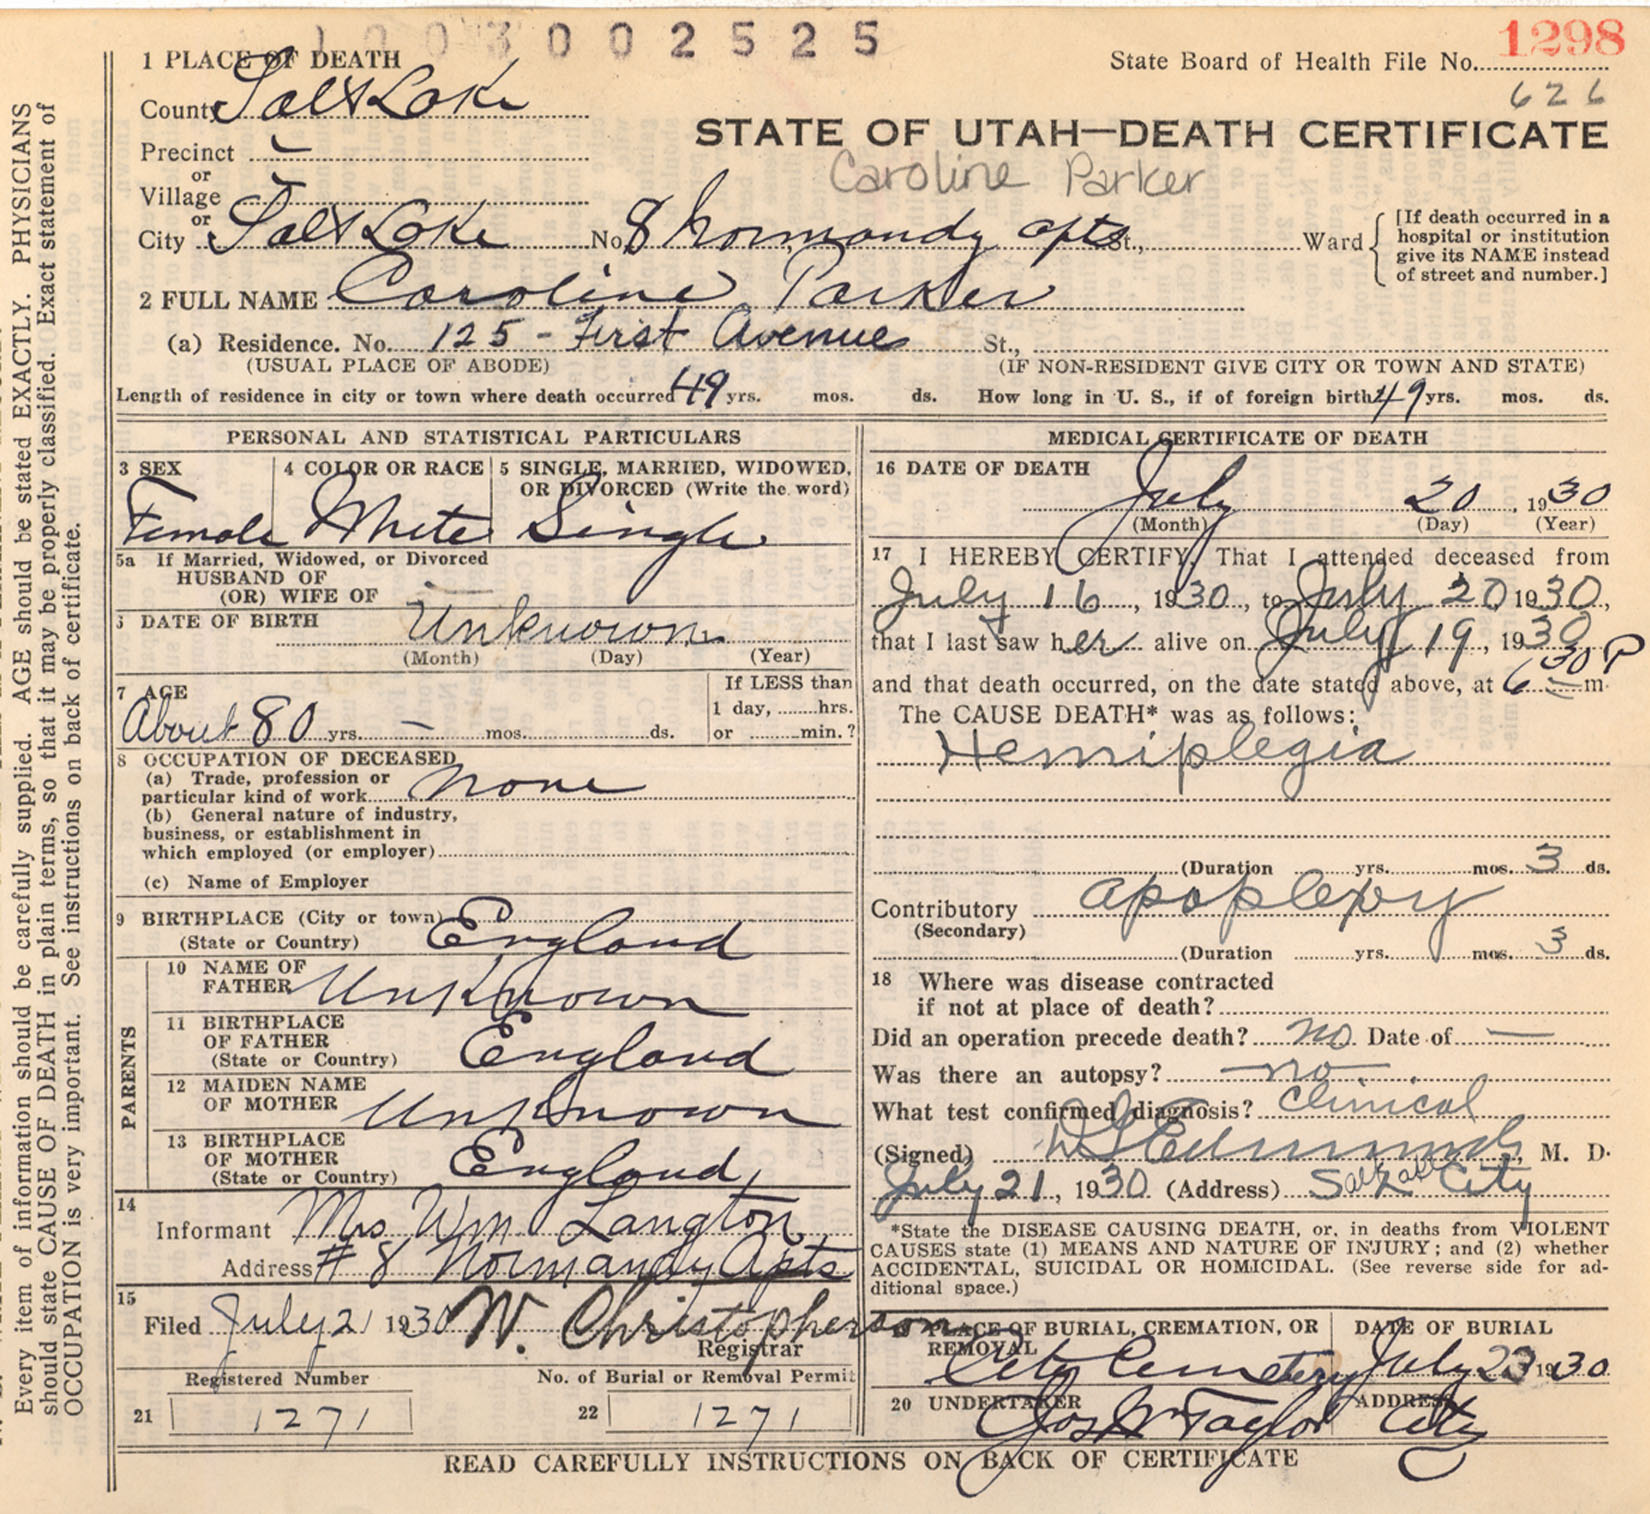 1003002525
1298
1 PLACE OF DEATH
State Board of Health File No.
County Salt Lake
626
STATE OF UTAH—DEATH CERTIFICATE
Precinct
or
Caroline Parker
Village
or
City Salt Lake No 8 Normandy apts St., Ward
[If death occurred in a
hospital or institution
give its NAME instead
of street and number.]
2 FULL NAME Caroline Parker
(a) Residence. No. 125 - First Avenue St.,
(USUAL PLACE OF ABODE) (IF NON-RESIDENT GIVE CITY OR TOWN AND STATE)
Length of residence in city or town where death occurred 49 yrs. mos. ds. How long in U. S., if of foreign birth 49 yrs. mos. ds.
PERSONAL AND STATISTICAL PARTICULARS
3 SEX
Female
4 COLOR OR RACE
White
5 SINGLE, MARRIED, WIDOWED,
OR DIVORCED (Write the word)
Single
5a If Married, Widowed, or Divorced
HUSBAND OF
(OR) WIFE OF
DATE OF BIRTH Unknown
(Month) (Day) (Year)
7 AGE
About 80 yrs. — mos. ds.
If LESS than
1 day, hrs.
or min.?
8 OCCUPATION OF DECEASED
(a) Trade, profession or
particular kind of work none
(b) General nature of industry,
business, or establishment in
which employed (or employer)
(c) Name of Employer
9 BIRTHPLACE (City or town)
(State or Country) England
PARENTS
10 NAME OF
FATHER Unknown
11 BIRTHPLACE
OF FATHER
(State or Country) England
12 MAIDEN NAME
OF MOTHER Unknown
13 BIRTHPLACE
OF MOTHER
(State or Country) England
14
Informant Mrs Wm Langton
Address # 8 Normandy Apts
15
Filed July 21 1930 W. Christopherson
Registrar
Registered Number No. of Burial or Removal Permit
21 1271 22 1271
MEDICAL CERTIFICATE OF DEATH
16 DATE OF DEATH
July 20, 1930
(Month) (Day) (Year)
17 I HEREBY CERTIFY, That I attended deceased from
July 16, 1930, to July 20 1930,
that I last saw her alive on July 19, 1930
and that death occurred, on the date stated above, at 6 30 P m.
The CAUSE DEATH* was as follows:
Hemiplegia
(Duration yrs. mos. 3 ds.
Contributory apoplexy
(Secondary)
(Duration yrs. mos. 3 ds.
18 Where was disease contracted
if not at place of death?
Did an operation precede death? no Date of —
Was there an autopsy? no
What test confirmed diagnosis? Clinical
(Signed) Edmunds, M. D.
July 21, 1930 (Address) Salt Lake City
*State the DISEASE CAUSING DEATH, or, in deaths from VIOLENT
CAUSES state (1) MEANS AND NATURE OF INJURY; and (2) whether
ACCIDENTAL, SUICIDAL OR HOMICIDAL. (See reverse side for ad-
ditional space.)
19 PLACE OF BURIAL, CREMATION, OR
REMOVAL
City Cemetery
DATE OF BURIAL
July 23 1930
20 UNDERTAKER
Jos Wm Taylor
ADDRESS
City
READ CAREFULLY INSTRUCTIONS ON BACK OF CERTIFICATE
Every item of information should be carefully supplied. AGE should be stated EXACTLY. PHYSICIANS
should state CAUSE OF DEATH in plain terms, so that it may be properly classified. Exact statement of
OCCUPATION is very important. See instructions on back of certificate.